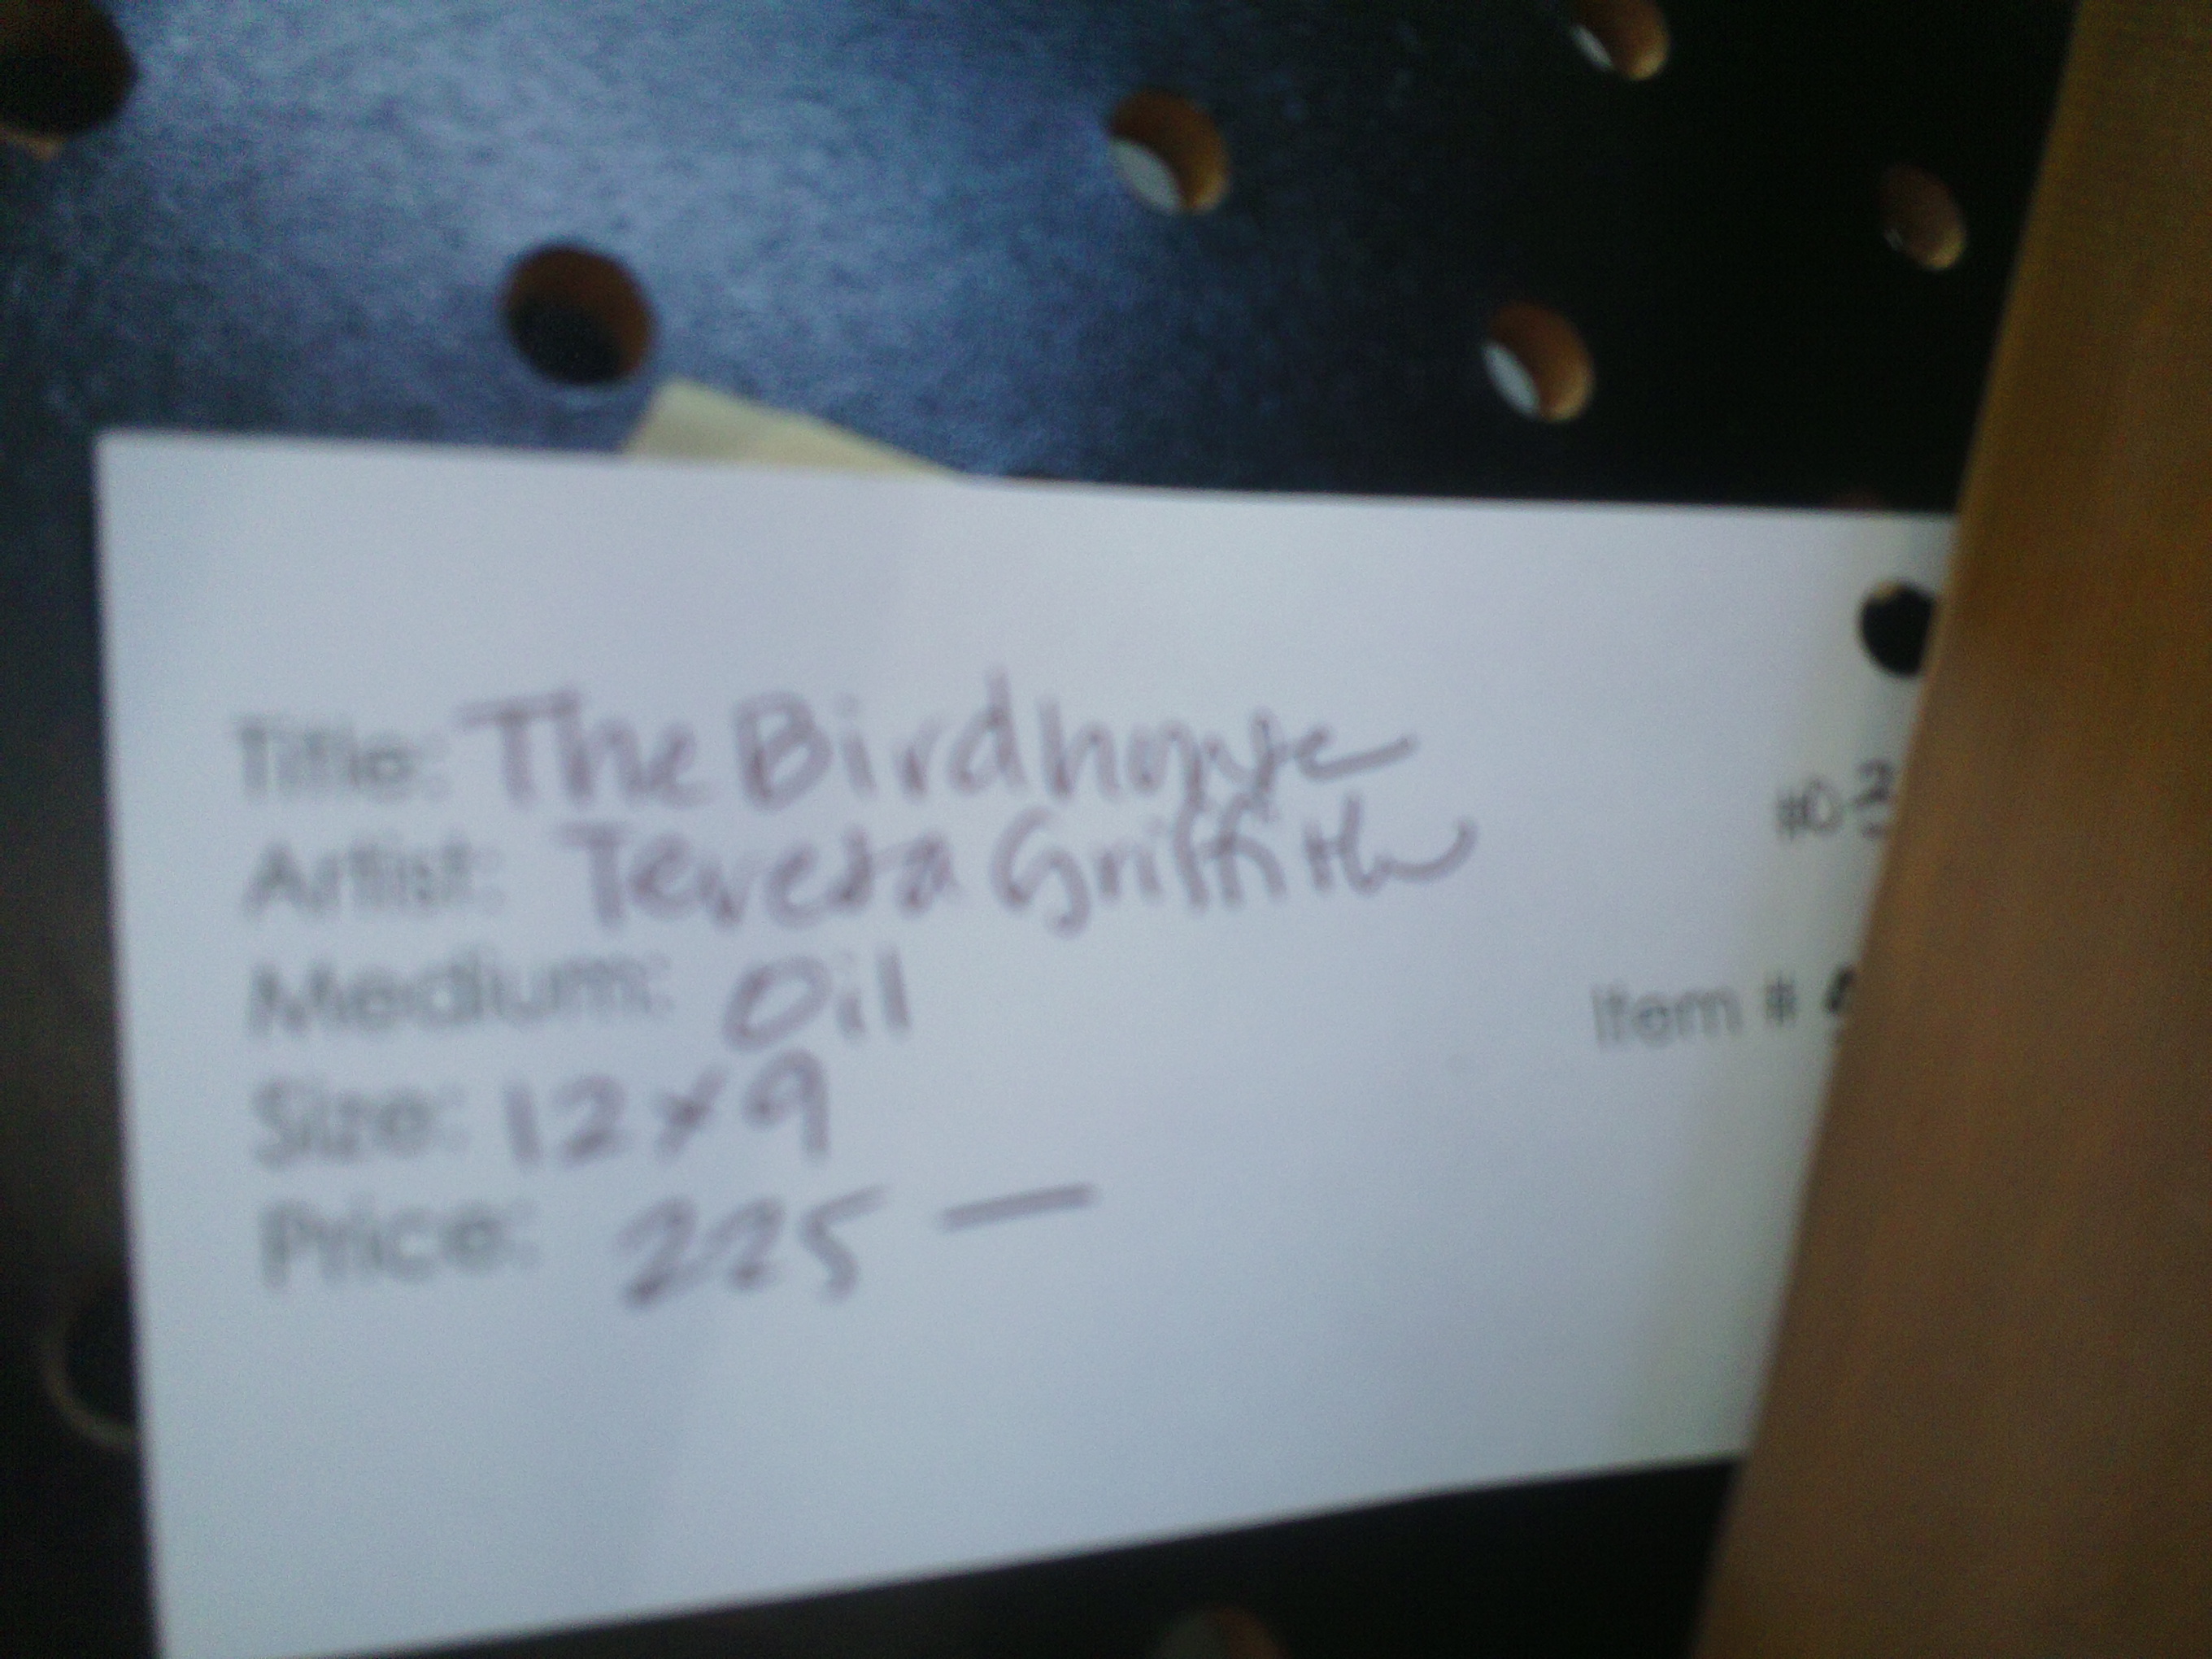 Title: The Birdhouse
Artist: Teresa Griffith
Medium: Oil
Size: 12x9
Price: 225 —
Item #